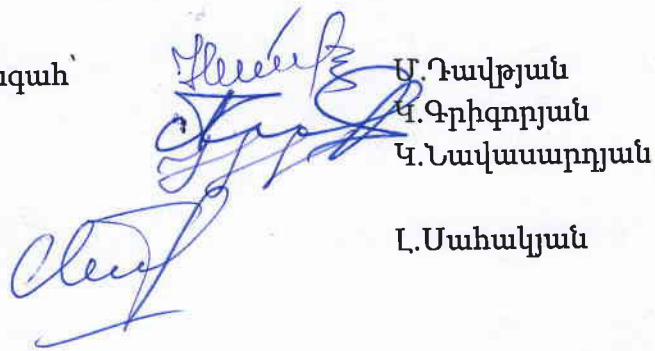 ագահ՝ Մ.Դավթյան
Կ.Գրիգորյան
Կ.Նավասարդյան
Լ.Սահակյան